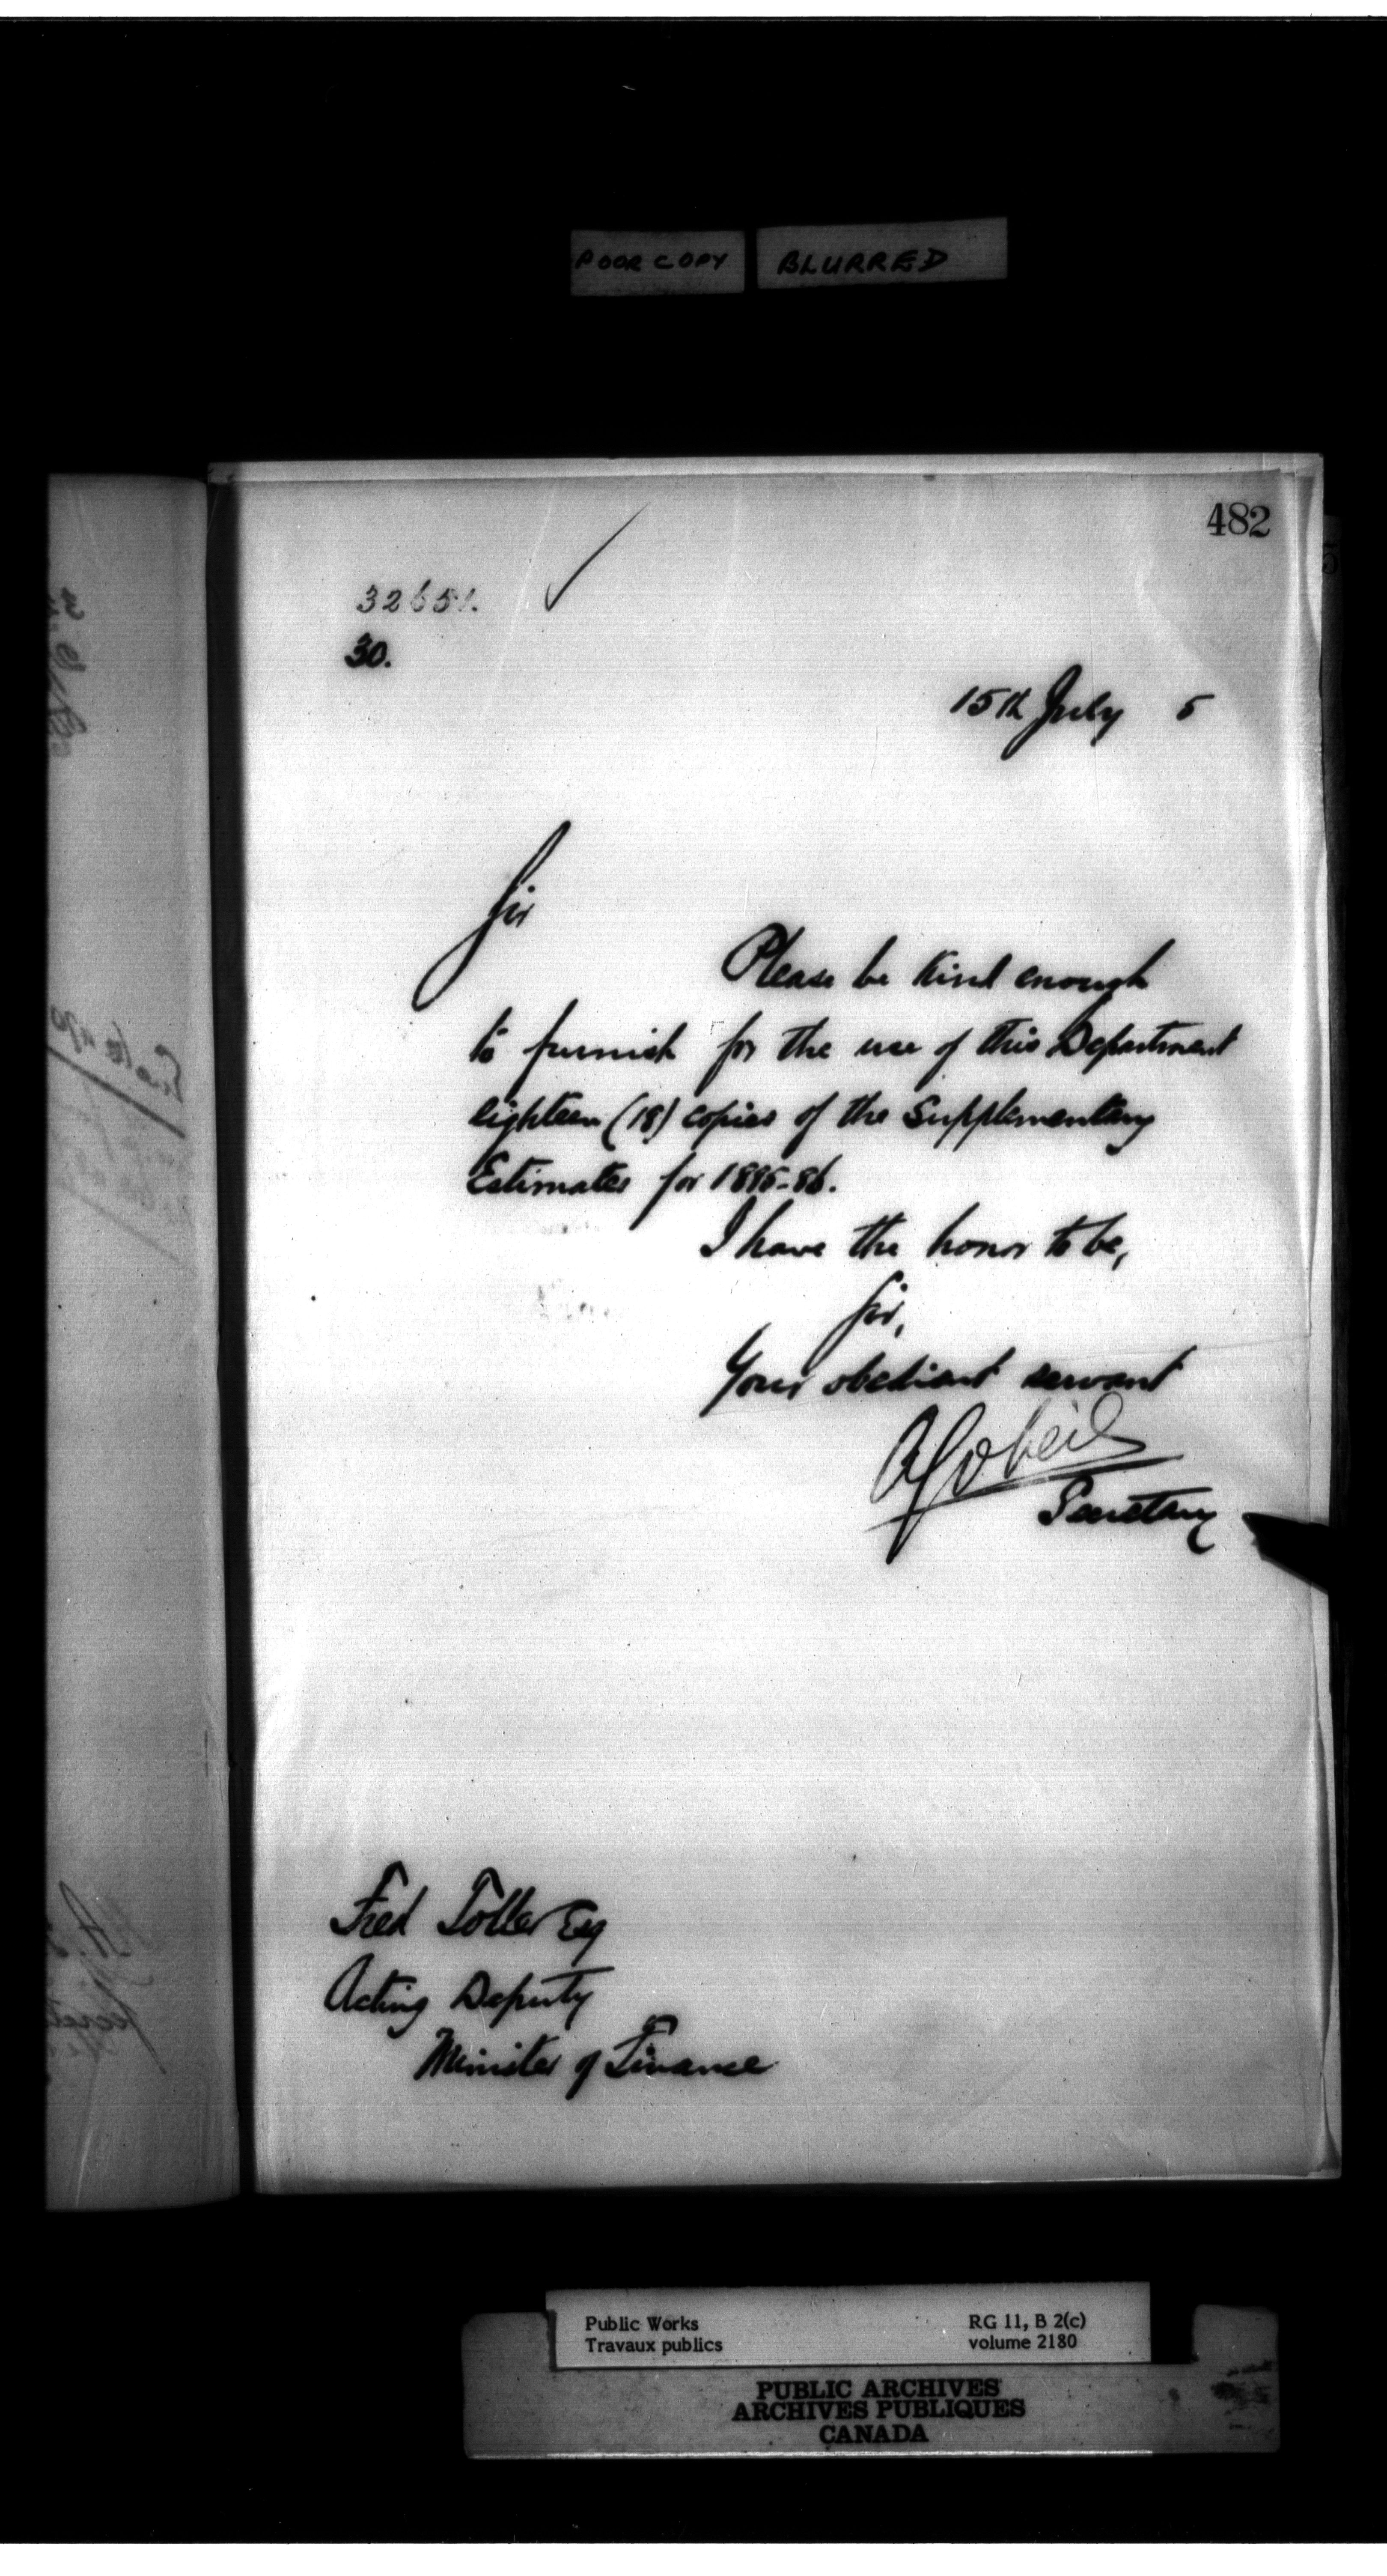 POOR COPY BLURRED
482
32651.
30.
15th July 5
Sir
Please be kind enough
to furnish for the use of this Department
eighteen (18) copies of the Supplementary
Estimates for 1885-86.
I have the honor to be,
Sir,
Your obedient servant
A Gobeil
Secretary
Fred Toller Esq
Acting Deputy
Minister of Finance
Public Works RG 11, B 2(c)
Travaux publics volume 2180
PUBLIC ARCHIVES
ARCHIVES PUBLIQUES
CANADA